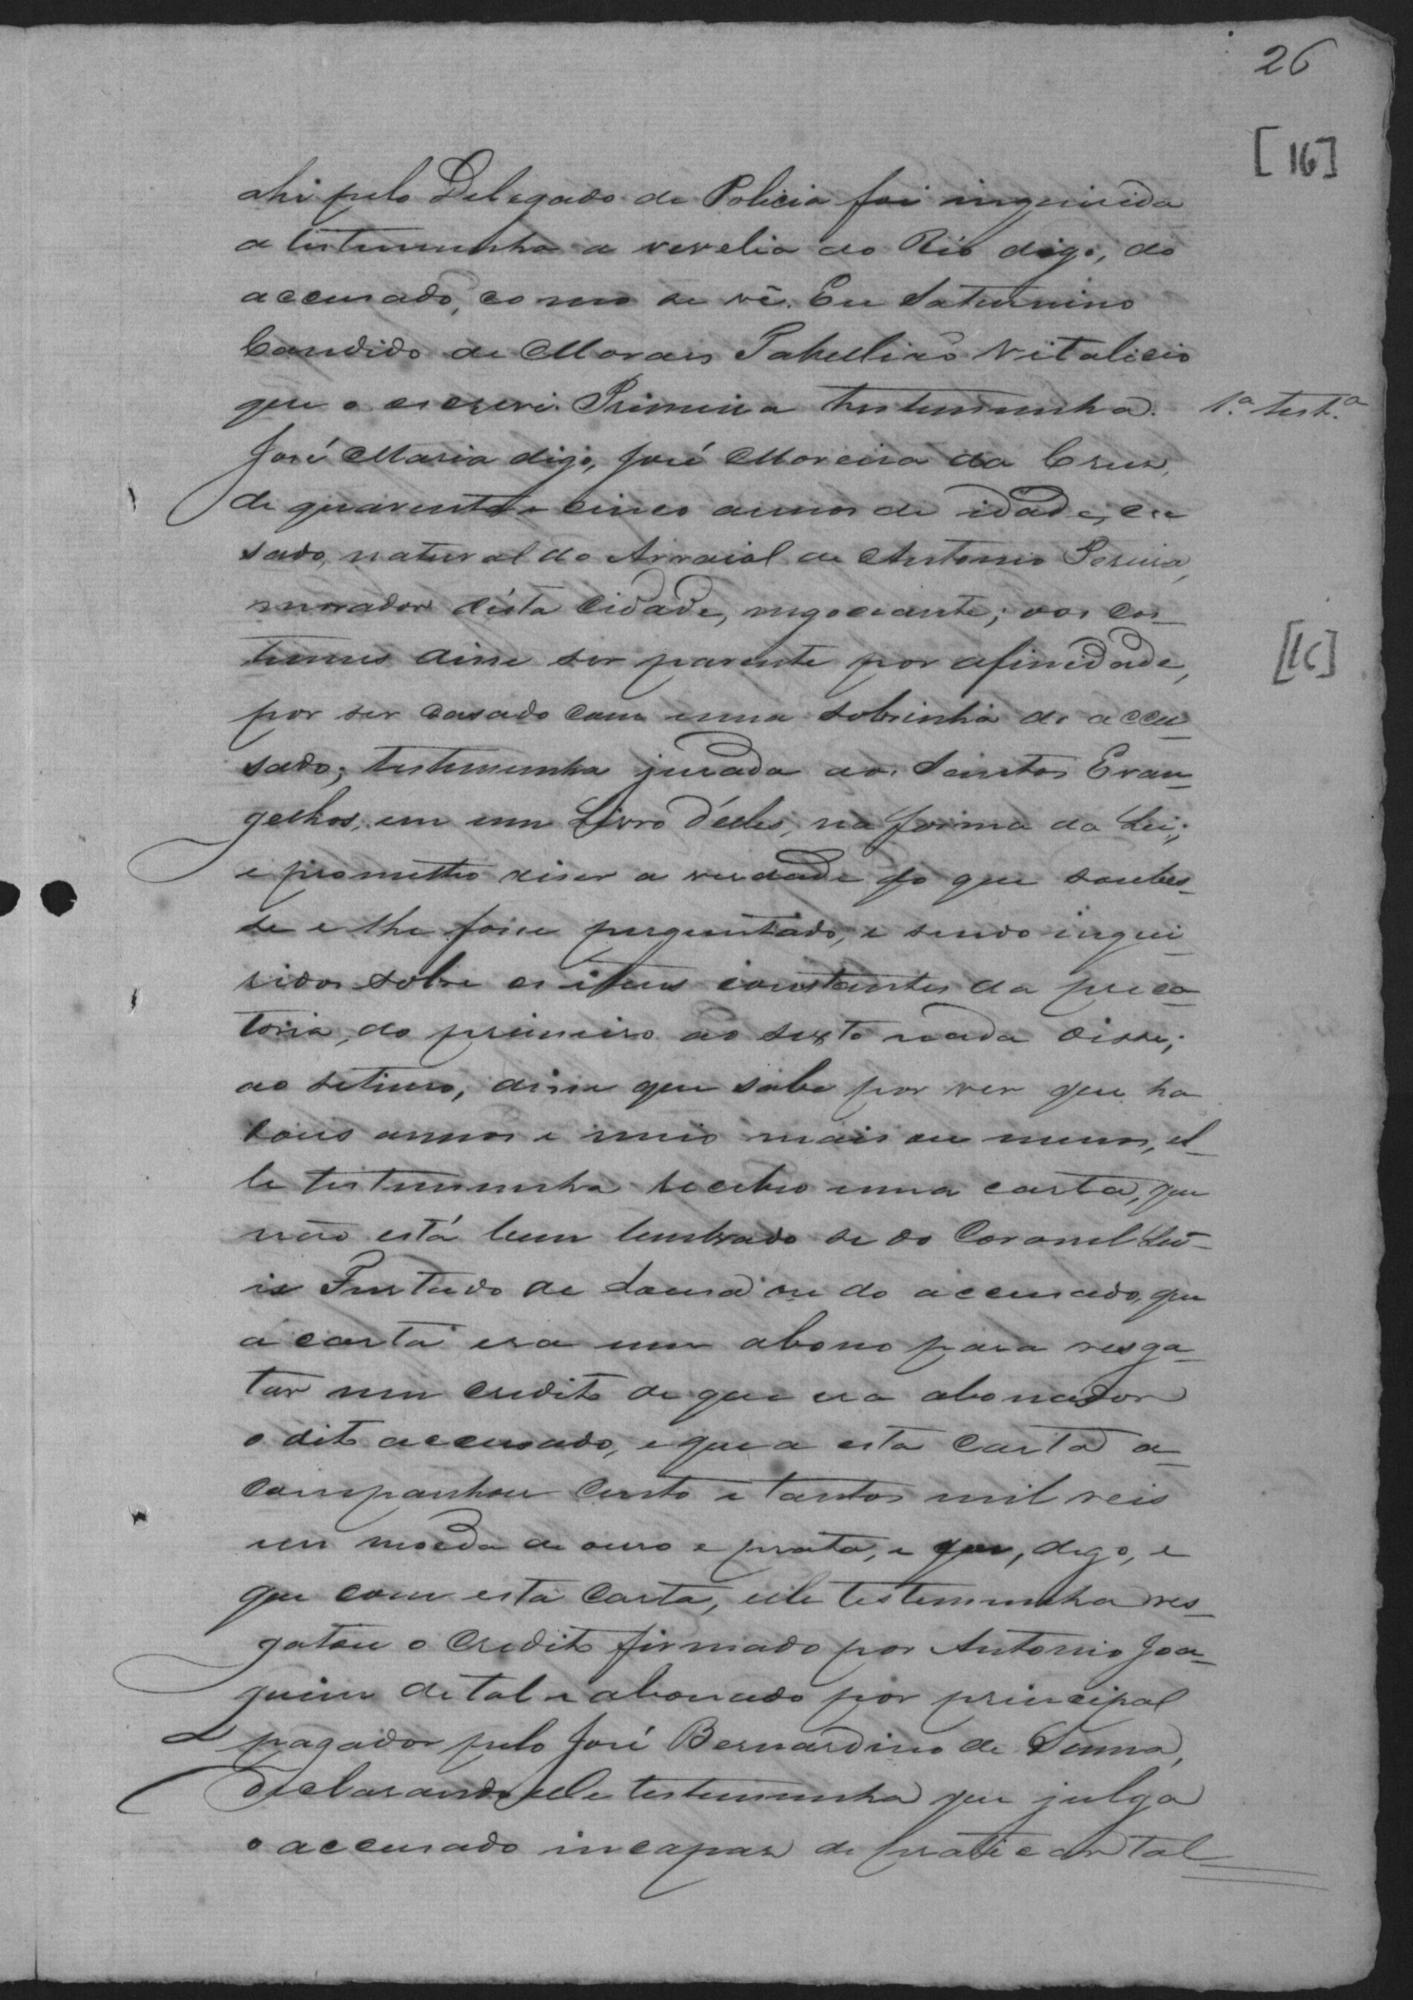 26
[16]
ahi pelo Delegado de Policia foi inquirida
a testemunha a revelia do Réo digo, do
accusado, como se vê. Eu Saturnino
Candido de Moraes Tabellião Vitalicio
que o escrevi. Primeira testemunha.
1.ª test.ª
José Maria digo, José Moreira da Cruz,
de quarenta e cinco annos de idade, ca
sado, natural do Arraial de Antonio Pereira,
morador n'esta Cidade, negociante; aos cos-
tumes disse ser parente por afinidade,
[16]
por ser casado com uma sobrinha do accu-
sado; testemunha jurada aos Santos Evan-
gelhos, em um Livro d'elles, na forma da Lei;
e prometteo diser a verdade do que soubes-
se e lhe fosse perguntado, e sendo inqui-
ridos sobre os itens constantes da preca-
toria, do primeiro ao sexto nada disse;
ao setimo, disse que sabe por ver que ha
dous annos e meio mais ou menos, el-
le testemunha recebeo uma carta, que
não está bem lembrado se do Coronel Lu-
is Furtado de Sousa ou do accusado, que
a carta era um abono para resga-
tar um credito de que era abonador
o dito accusado, e que a esta carta a-
companhou cento e tantos mil reis
em moeda de ouro e prata, e que, digo, e
que com esta carta, elle testemunha res-
gatou o credito firmado por Antonio Joa-
quim de tal e abonado por principal
pagador pelo José Bernardino de Senna,
declarando elle testemunha que julga
o accusado incapas de praticar tal